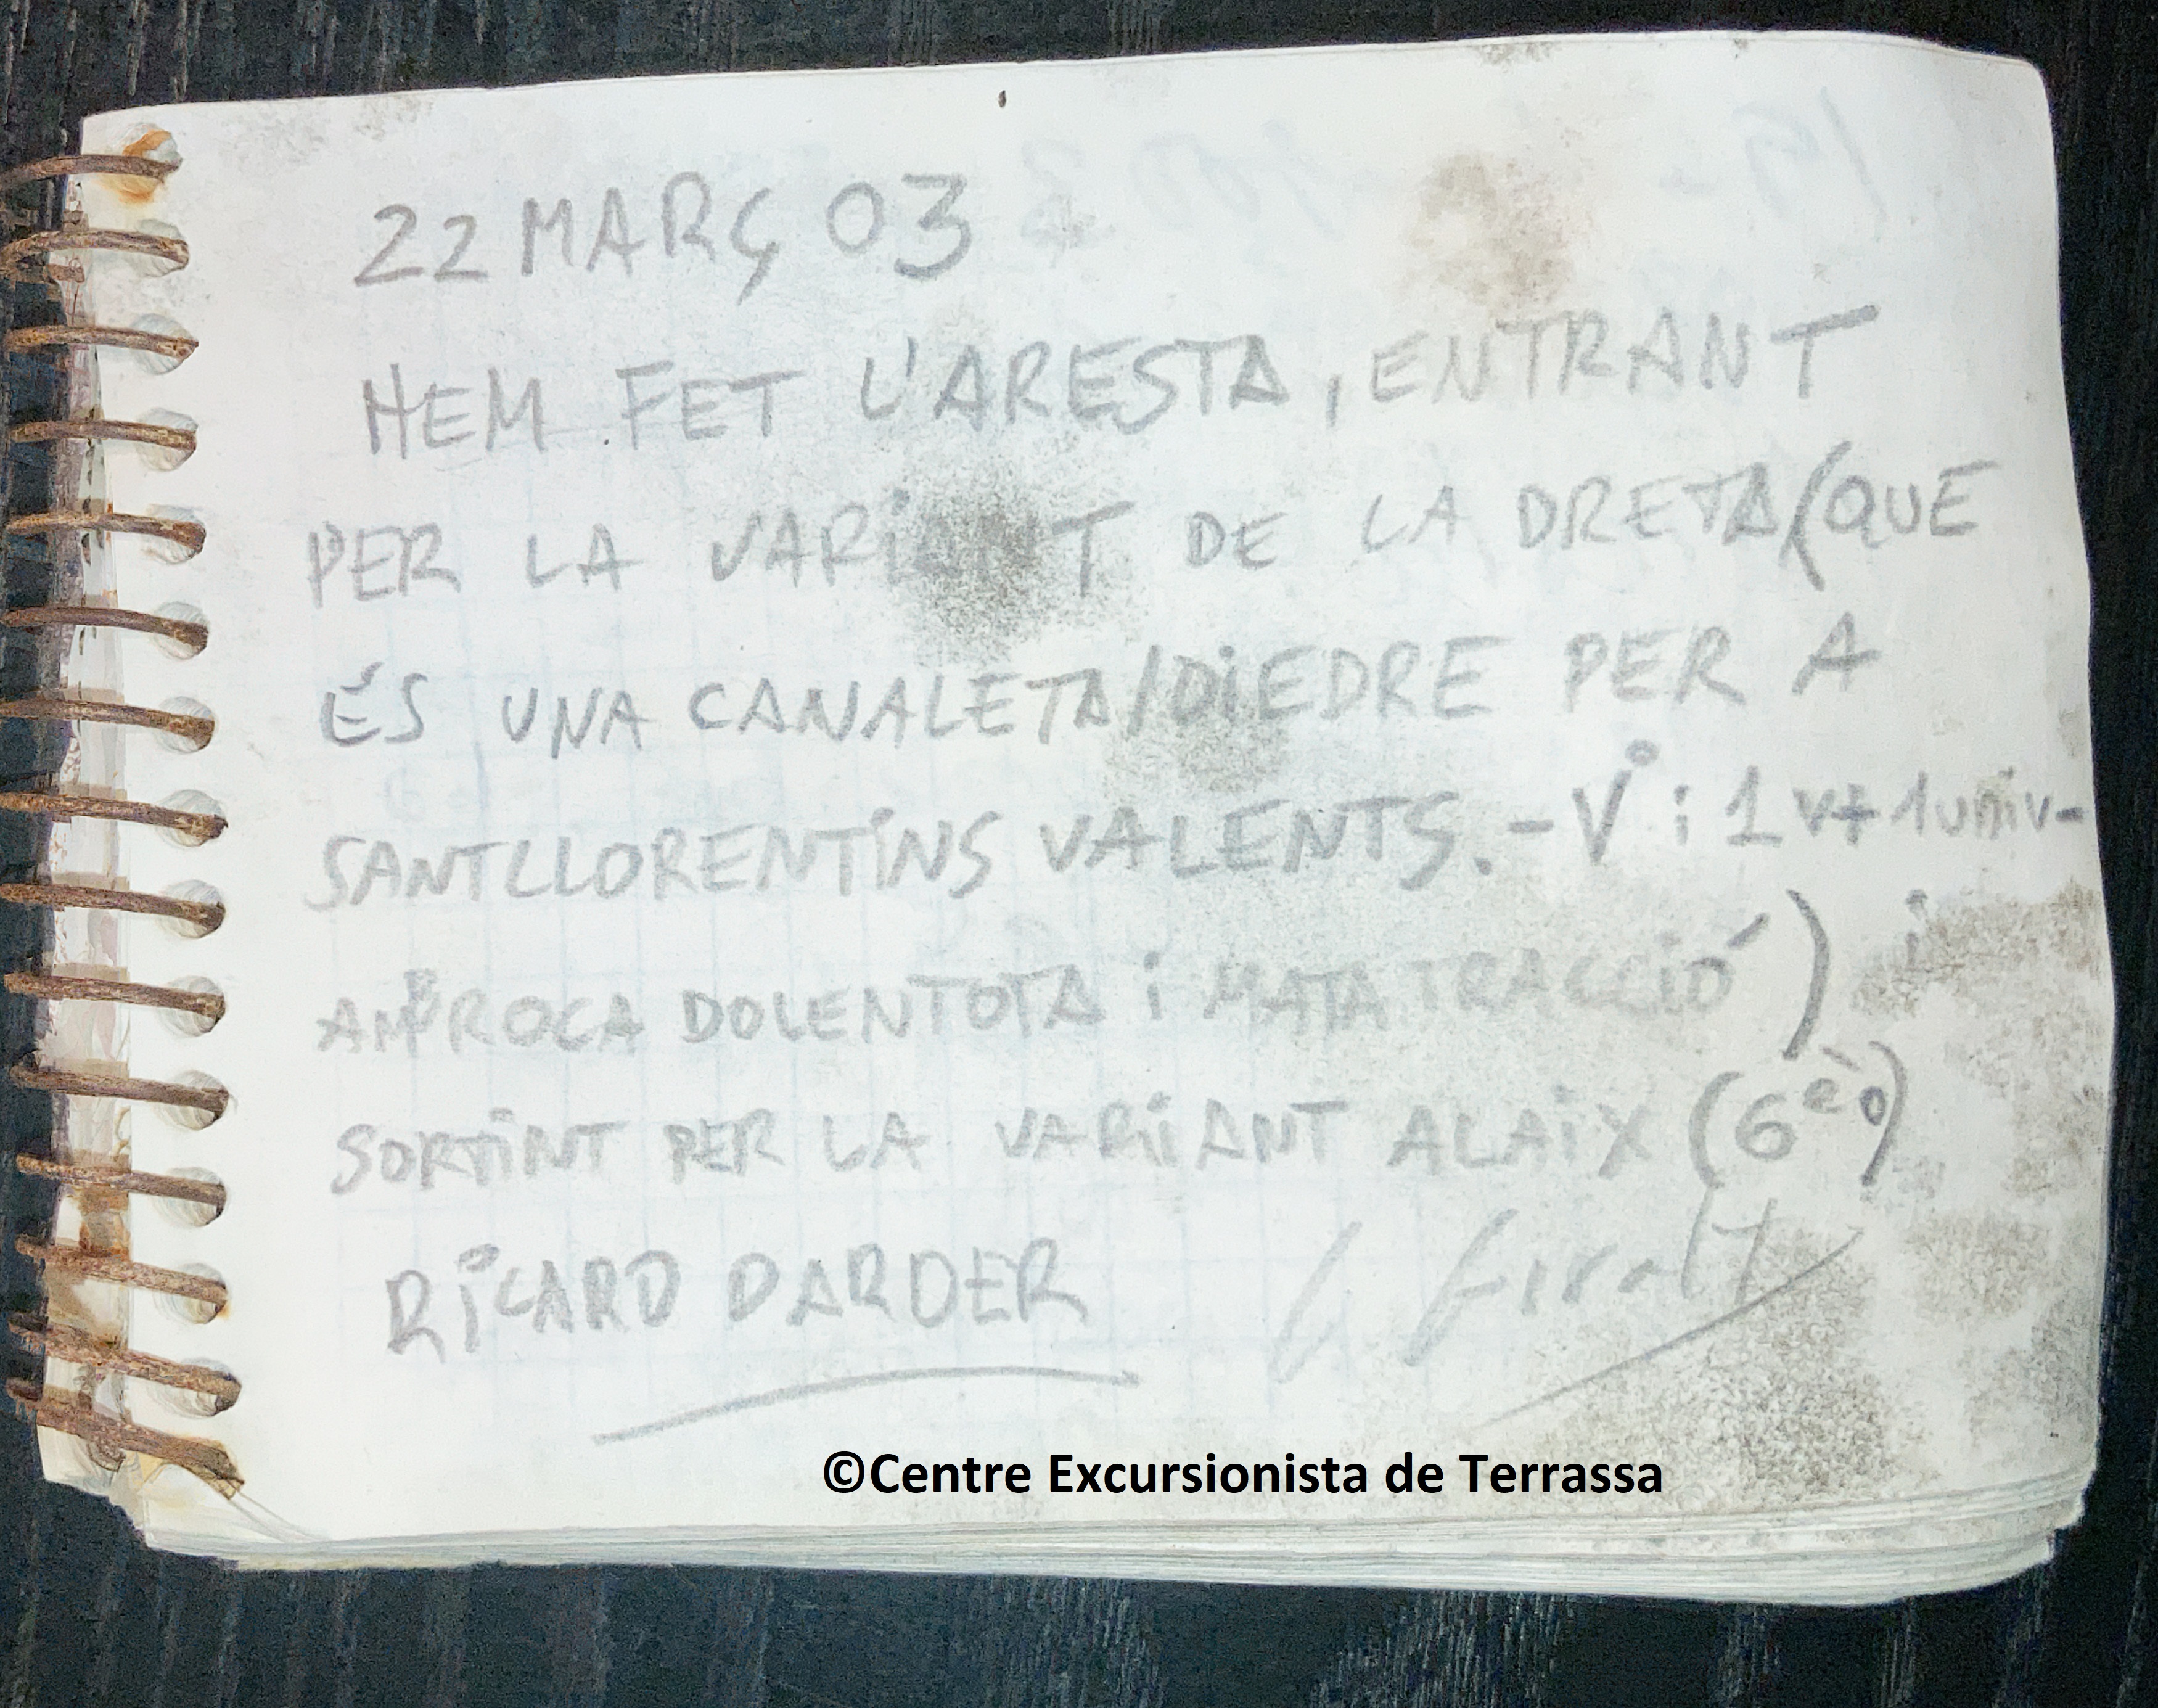 22 MARÇ 03
HEM FET L'ARESTA, ENTRANT
PER LA VARIANT DE LA DRETA (QUE
ÉS UNA CANALETA/DIEDRE PER A
SANTLLORENTINS VALENTS. - Vº i 1 V+ 1 univ-
AMB ROCA DOLENTOTA i MATA TRACCIÓ) i
SORTINT PER LA VARIANT ALAIX (6è)
RICARD DARDER
Giralt
©Centre Excursionista de Terrassa